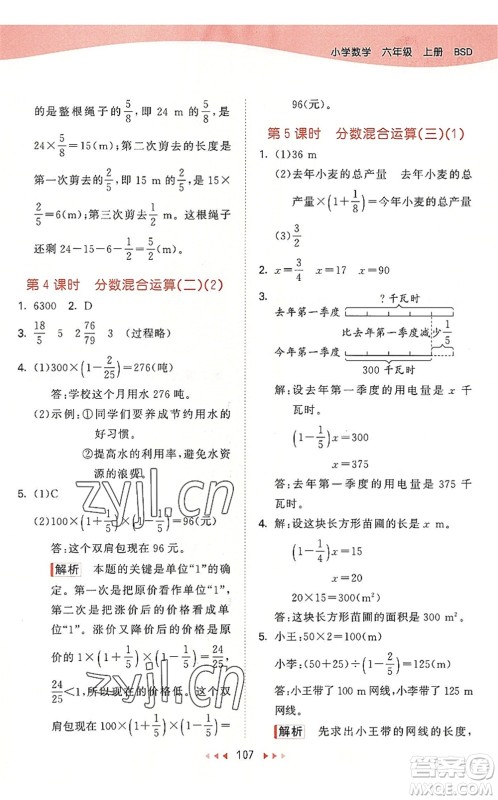 小学数学 六年级 上册 BSD
的是整根绳子的5/8，即 24 m 的5/8，
24×5/8=15(m)；第二次剪去的长度是
第一次剪去的2/5，即 15 m 的2/5，15×
2/5=6(m)，共剪去2次。这根绳子
还剩 24-15-6=
第 4 课时 分数混合运算(二)(2)
1. 6300 2. D
3. 18/5 5 2 76/79 3 (过程略)
4. (1)300×(1-2/25)=276(吨)
答:学校这个月用水 276 吨。
(2)示例:①同学们要养成节约用水的
好习惯。
②提高水的利用率，避免水资
源的浪费。
5. (1)C
(2)100×(1+1/5)×(1-1/5)=96(元)
答:这个双肩包现在 96 元。
解析 本题的关键是单位“1”的确
定。第一次是把原价看作单位“1”，
第二次是把涨价后的价格看成单位
“1”，所以现在的价格是原价的
原价的1×(1+1/5)×(1-1/5)=24/25，
24/25<1，所以现在的价格低。这个双
肩包现在 100×(1+1/5)×(1-1/5)=
96(元)。
第 5 课时 分数混合运算(三)(1)
1. (1)36 m
(2)去年小麦的总产量 去年小麦的总产
量×(1+1/8)=今年小麦的总产量
(3)3/2
2. x=3/4 x=17
3.
?千瓦时
去年第一季度
比去年第一季度减少1/5
今年第一季度
300 千瓦时
解:设去年第一季度的用电量是 x 千
瓦时。
(1-1/5)x=300
x=375
答:去年第一季度的用电量是 375 千
瓦时。
4. 解:设这块长方形苗圃的长是 x m。
(1-1/4)x=15
x=20
20×15=300(m²)
答:这块长方形苗圃的面积是 300 m²。
5. 小王:50×2=100(m)
小李:(50+50)×(1+1/5)=120(m)
答:小王带了 100 m 网线，小李带了
120 m 网线。
解析 先求出小王带的网线的长度，
107
zyjl.cn
zyjl.cn
答案圈
MXQE.COM